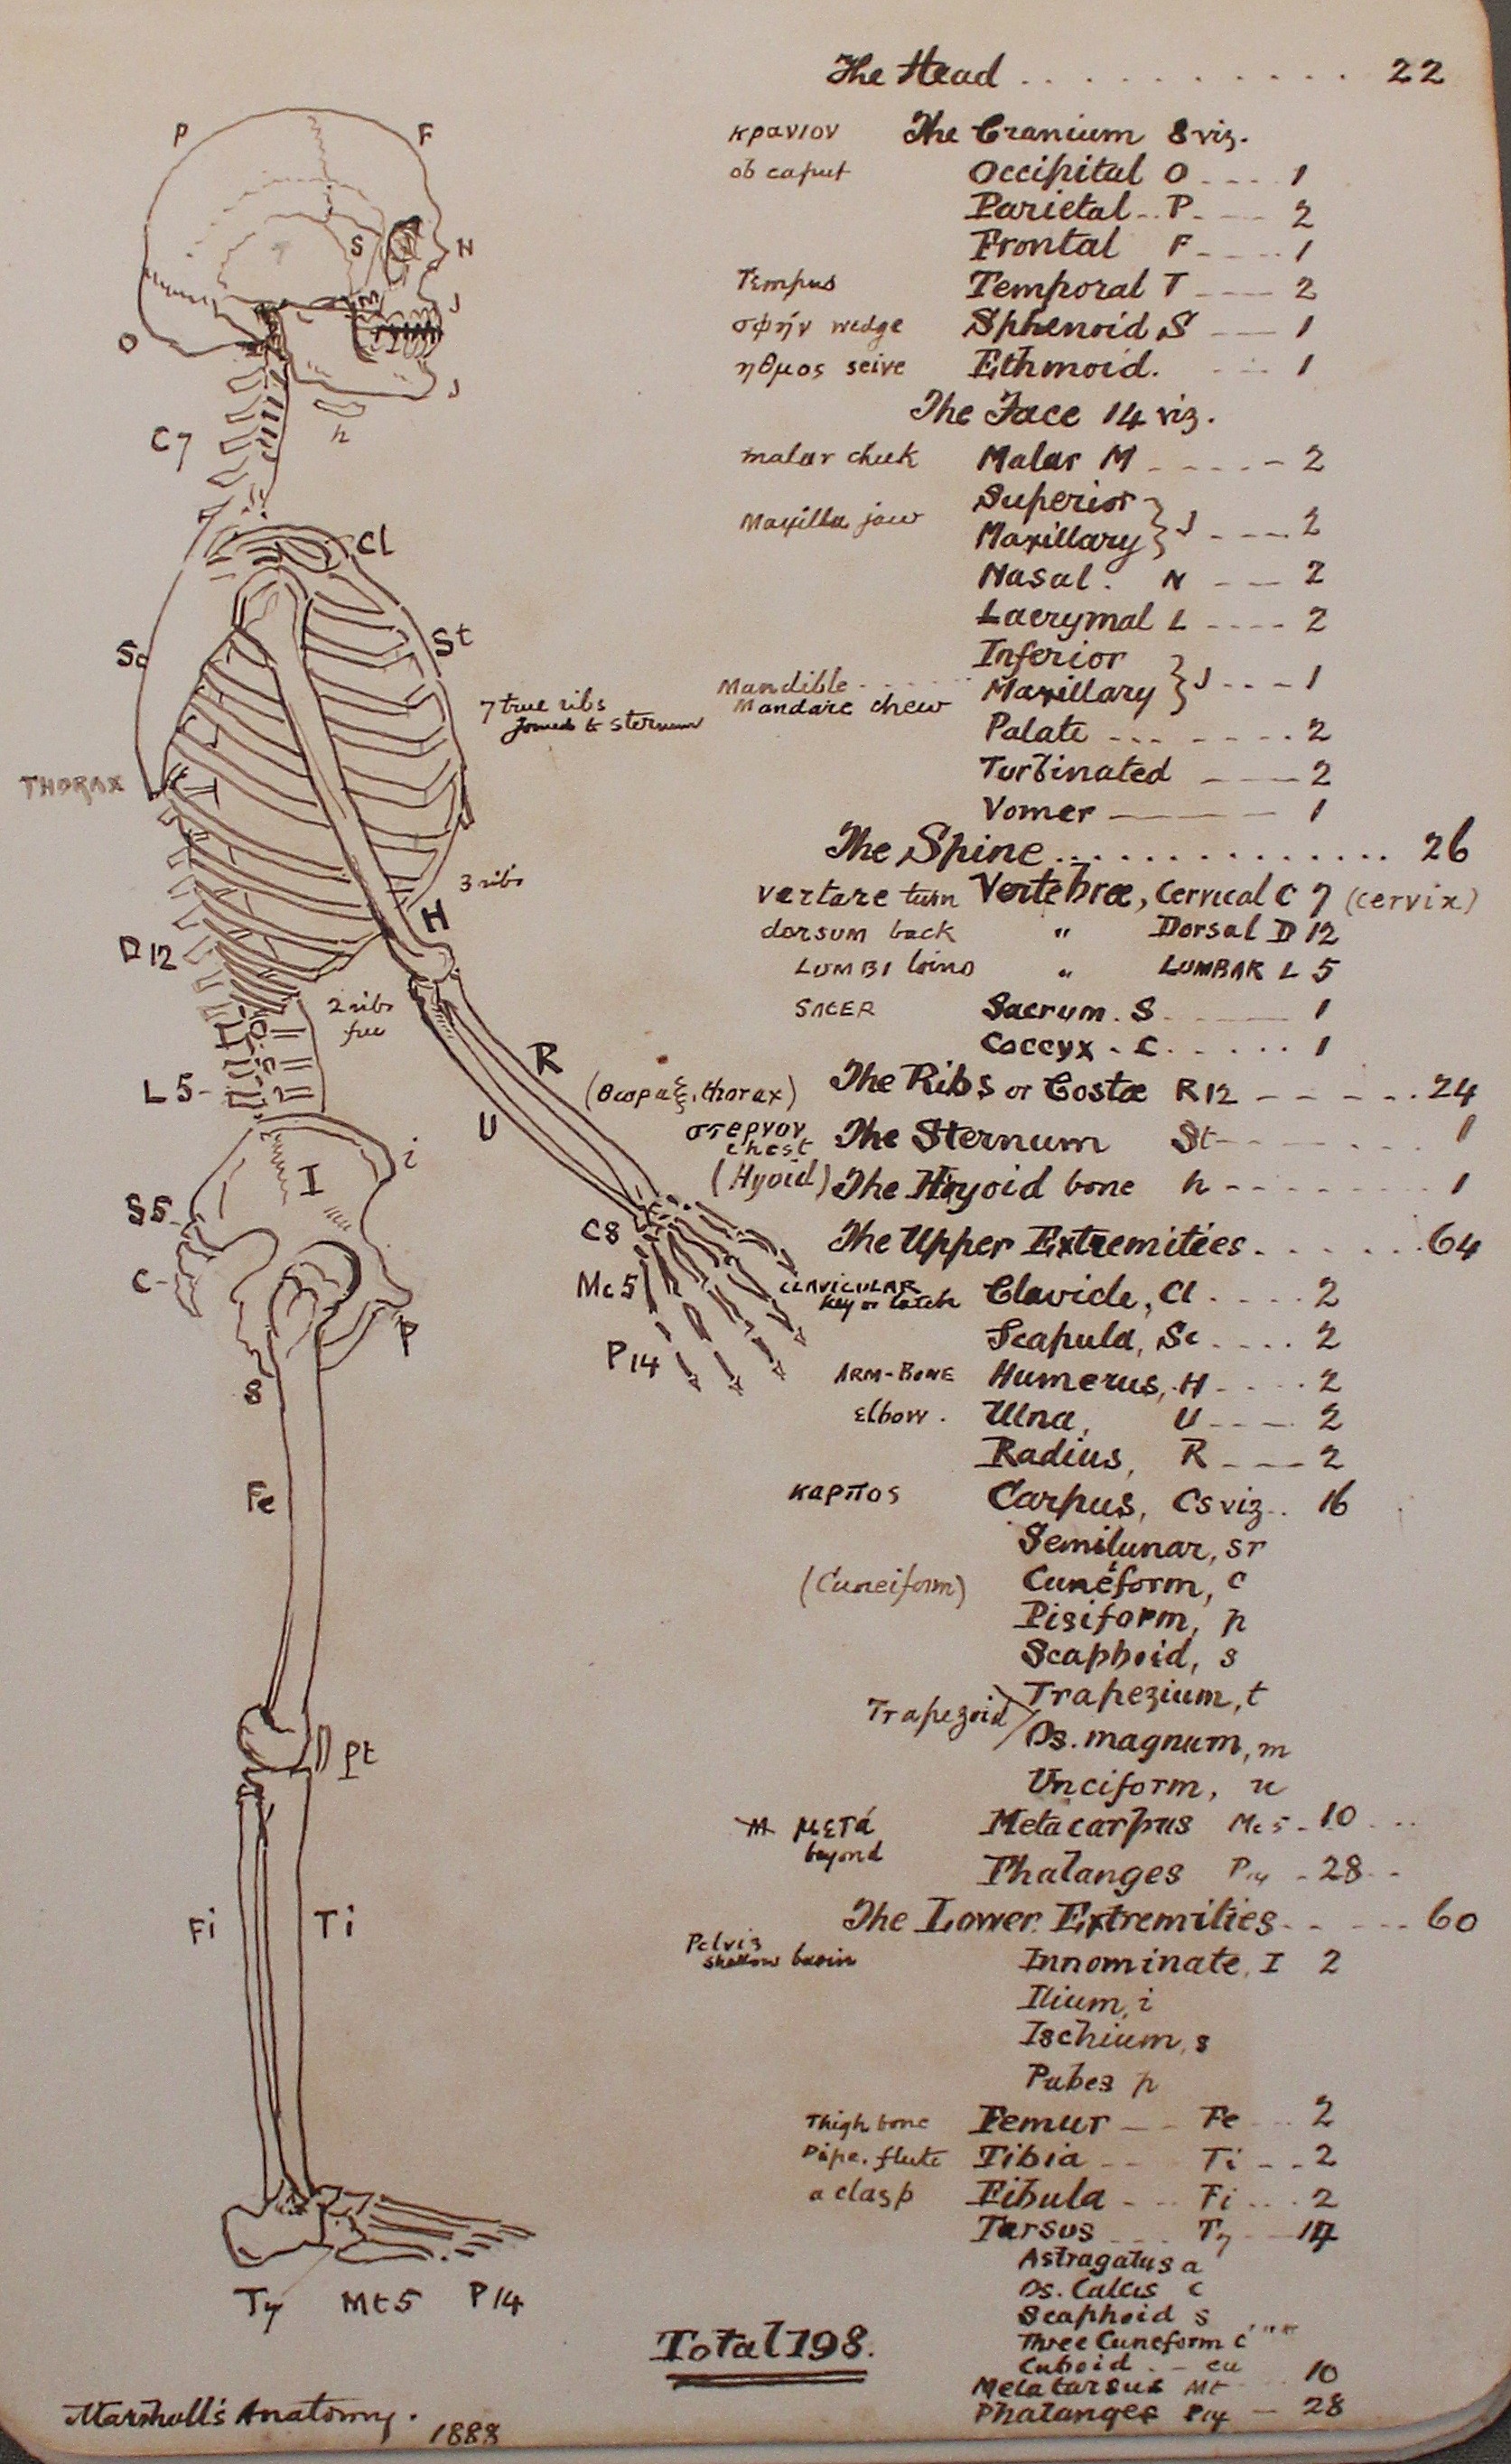 The Head . . . . . . . . . . . 22
κρανιον The Cranium 8 viz.
ob caput Occipital O - - - - 1
Parietal - - P - - - - 2
Frontal F - - - - 1
Tempus Temporal T - - - 2
σφήν wedge Sphenoid S - - - 1
ηθμος seive Ethmoid. - - - 1
The Face 14 viz.
malar cheek Malar M - - - - - 2
Maxilla jaw Superior
Maxillary } J - - - - 2
Nasal. N - - - 2
Lacrymal L - - - - 2
Inferior
Mandible - - - - - Maxillary } J - - - 1
Mandare chew
Palate - - - - - - - 2
Turbinated - - - 2
Vomer - - - - 1
The Spine . . . . . . . . . . . . . . 26
vertare turn Vertebræ, Cervical C 7 (cervix)
dorsum back " Dorsal D 12
LUMBI loins " LUMBAR L 5
SACER Sacrum. S - - - - 1
Coccyx - C. - - - - - 1
(θωραξ, thorax) The Ribs or Costæ R12 - - - - - 24
στερνον
chest The Sternum St - - - - - - - 1
(Hyoid) The Hyoid bone h - - - - - - - - 1
The Upper Extremities . . . . . . . 64
CLAVICULAR
key or latch Clavicle, Cl . - - - - 2
Scapula, Sc . . . . 2
ARM-BONE Humerus, H - - - - - 2
Elbow. Ulna, U - - - - 2
Radius, R - - - 2
καρπος Carpus, C8 viz . . 16
Semilunar, sr
(Cuneiform) Cuneform, c
i
Pisiform, p
Scaphoid, s
Trapezium, t
Trapezoid
Os. magnum, m
Unciform, u
M μετά
beyond Metacarpus Mc 5 - 10 - - -
Phalanges P14 - 28 - -
The Lower Extremities - - - - - 60
Pelvis
shallow basin Innominate, I 2
Ilium, i
Ischium, s
Pubes p
Thigh bone Femur - - Fe - - 2
Pipe. flute Tibia - - Ti - - 2
a clasp Fibula - - - Fi - - - 2
Tarsus - - - T7 - - 14
Astragalus a
Os. Calcis c
Scaphoid s
Three Cuneform c ' '' '''
Cuboid . - cu
Metatarsus Mt 10
Phalanges P14 - 28
Total 198.
P
F
S
N
M
J
O
J
h
C7
Cl
Sc
St
7 true ribs
Joined to sternum
THORAX
3 ribs
H
D12
2 ribs
free
R
L5-
U
I
i
S5
C-
C8
Mc5
P14
P
S
Fe
Pt
Fi
Ti
T7
Mt5
P14
Marshall's Anatomy.
1888